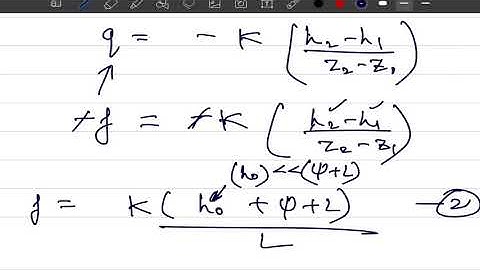 q = - K (h₂-h₁ / z₂-z₁)
-f = -K (h₂-h₁ / z₂-z₁)
(h₀) << (ψ+L)
f = K (h₀ + ψ + L) / L - ②